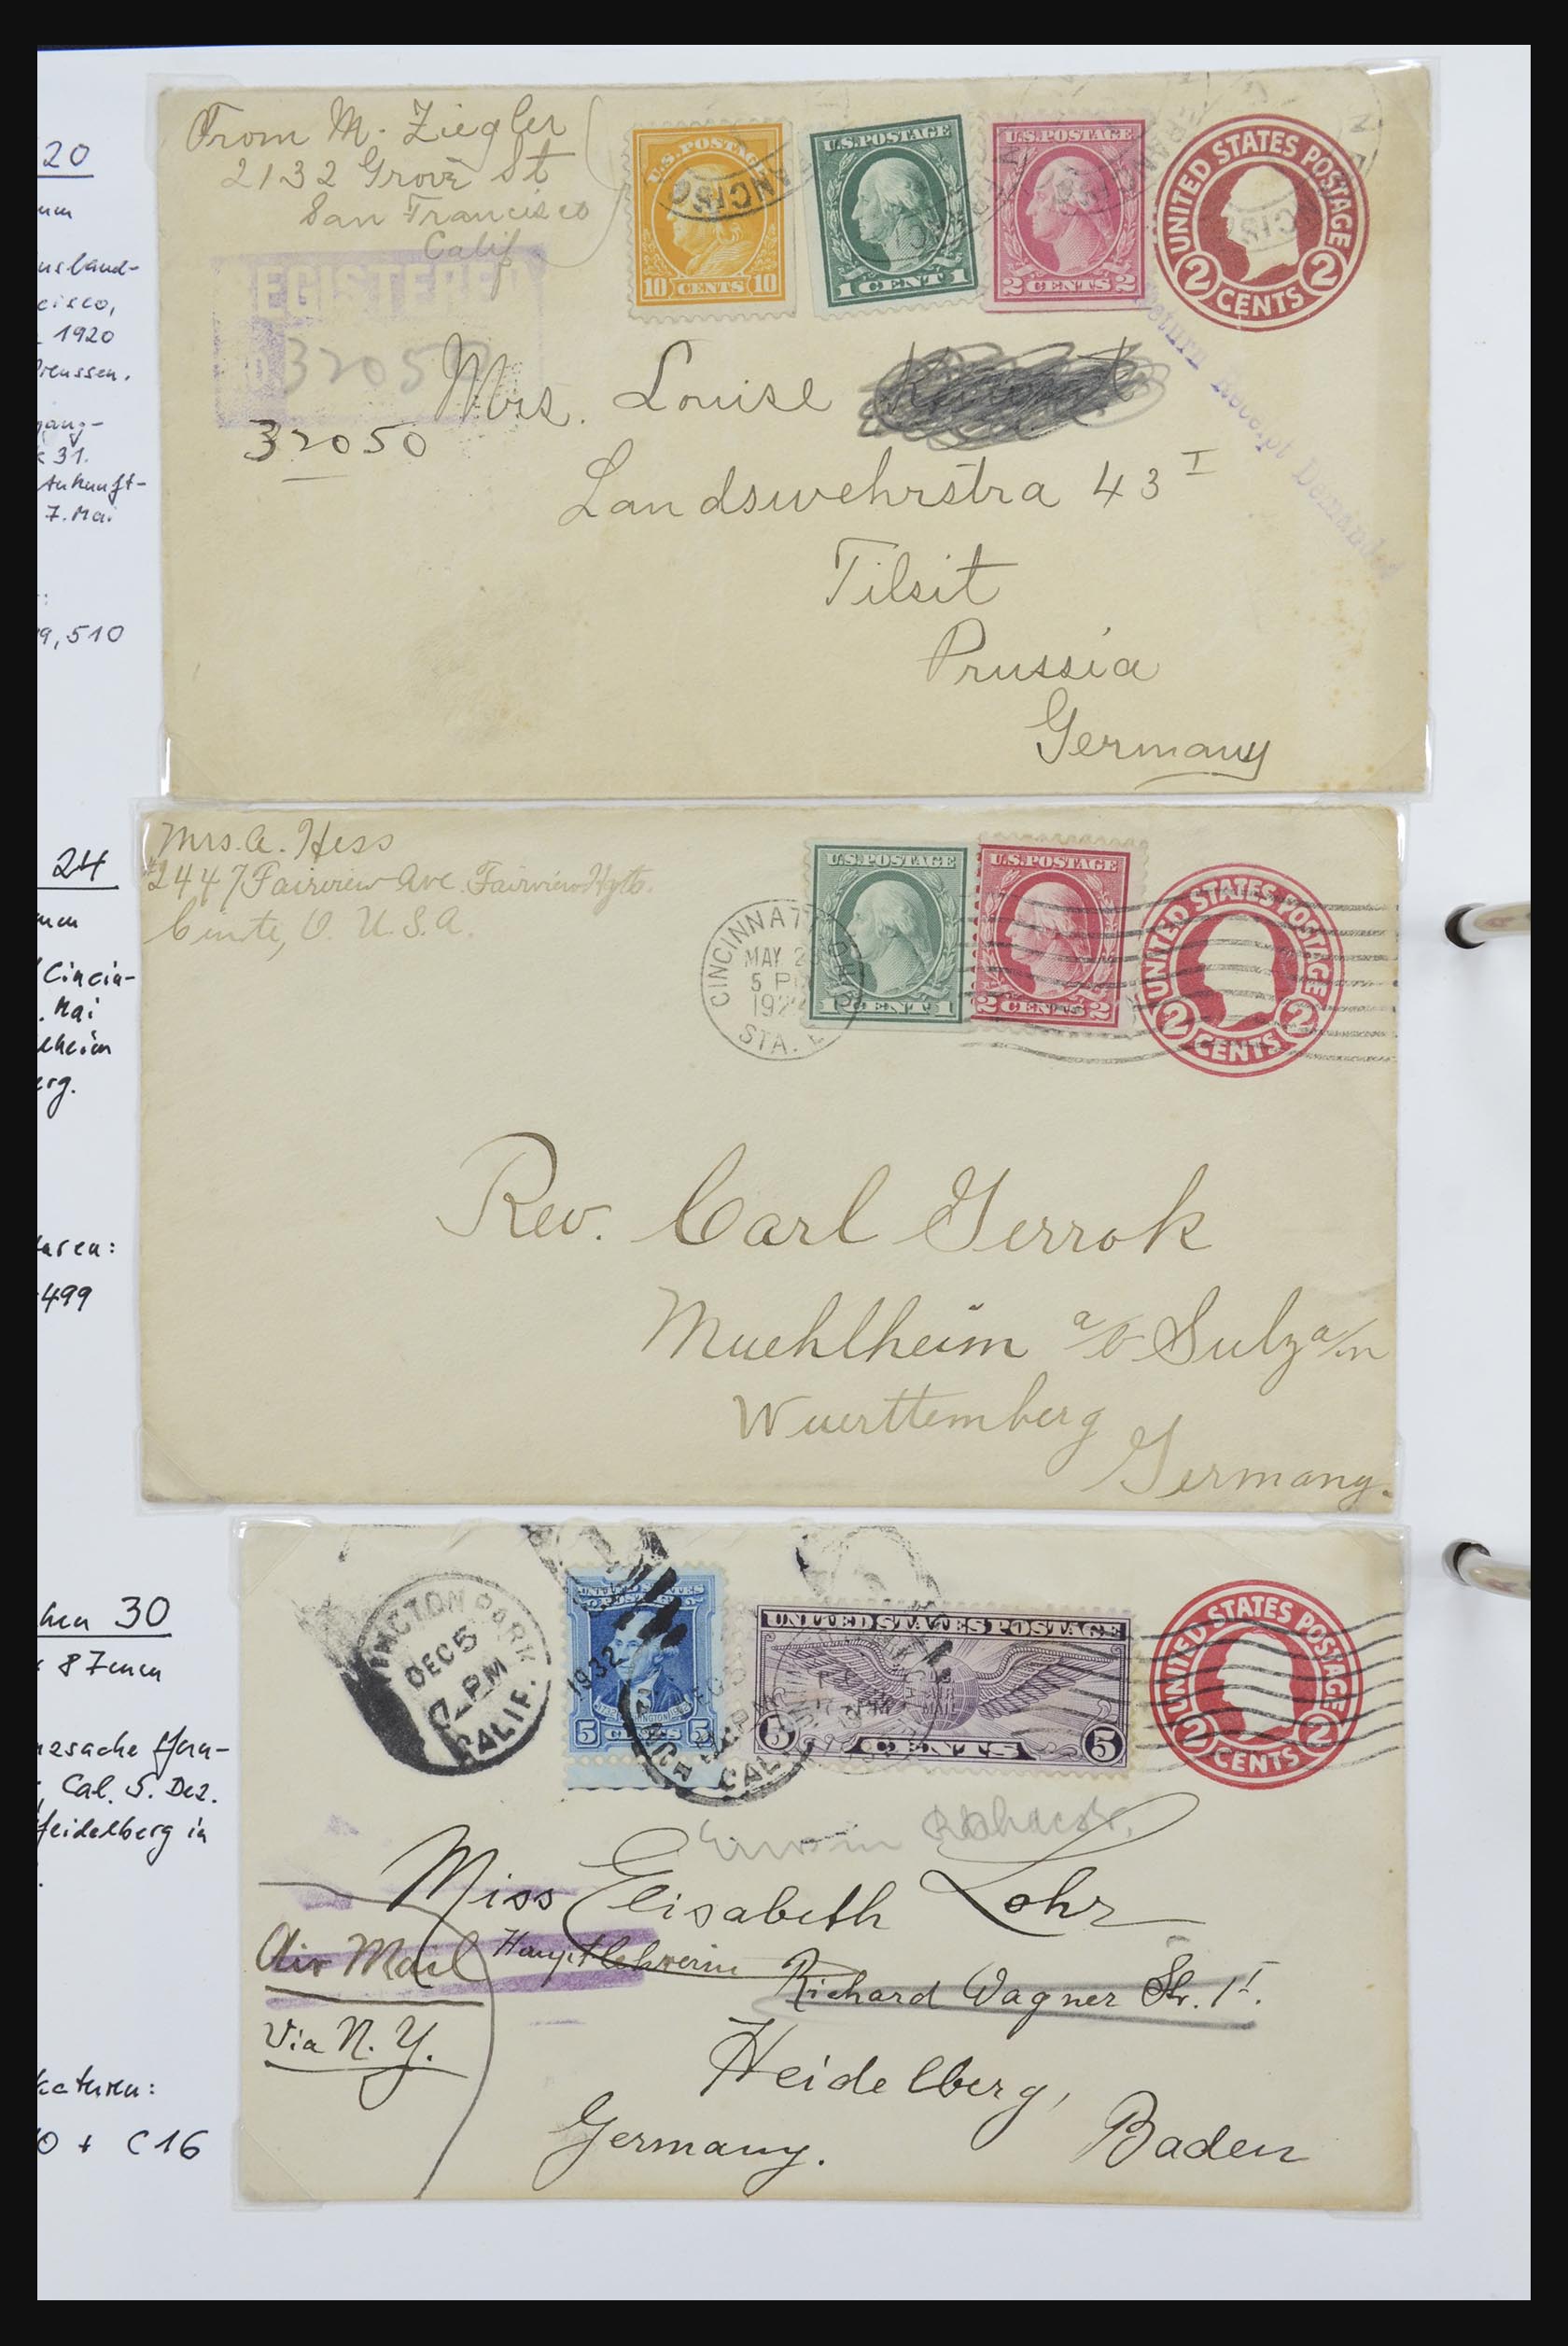 20
1920
31.
7. Mai
510
From M. Ziegler
2132 Grove St
San Francisco
Calif
REGISTERED
32050
32050
U.S. POSTAGE
10 CENTS 10
U.S. POSTAGE
1 CENT 1
U.S. POSTAGE
2 CENTS 2
UNITED STATES POSTAGE
2 CENTS 2
Return Receipt Demanded
Mrs. Louise
Landswehrstra 43 I
Tilsit
Prussia
Germany
24
Mai
499
Mrs. A. Hess
2447 Fairview Ave. Fairview Hgts.
U.S.A.
CINCINNATI
MAY
5 P
192
STA.
U.S. POSTAGE
1 CENT 1
U.S. POSTAGE
2 CENTS 2
UNITED STATES POSTAGE
2 CENTS 2
Rev. Carl Gerrok
Muehlheim a/b Sulz a/n
Wuerttemberg
Germany.
30
Cal. 5. Dez.
Heidelberg in
+ C16
NGTON PARK
DEC 5
7 PM
CALIF.
1932
UNITED STATES
POSTAGE
5 CENTS 5
UNITED STATES POSTAGE
U.S.
AIR
MAIL
5 CENTS 5
UNITED STATES POSTAGE
2 CENTS 2
Miss Elisabeth Lohr
Air Mail
Hauptlehrerin
Richard Wagner Str. 1 I.
Via N. Y.
Heidelberg,
Germany. Baden